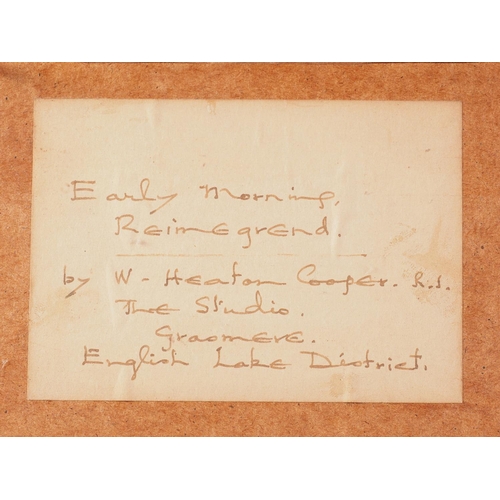 Early Morning,
Reimegrend.
by W- Heaton Cooper. R.I.
The Studio.
Grasmere.
English Lake District.